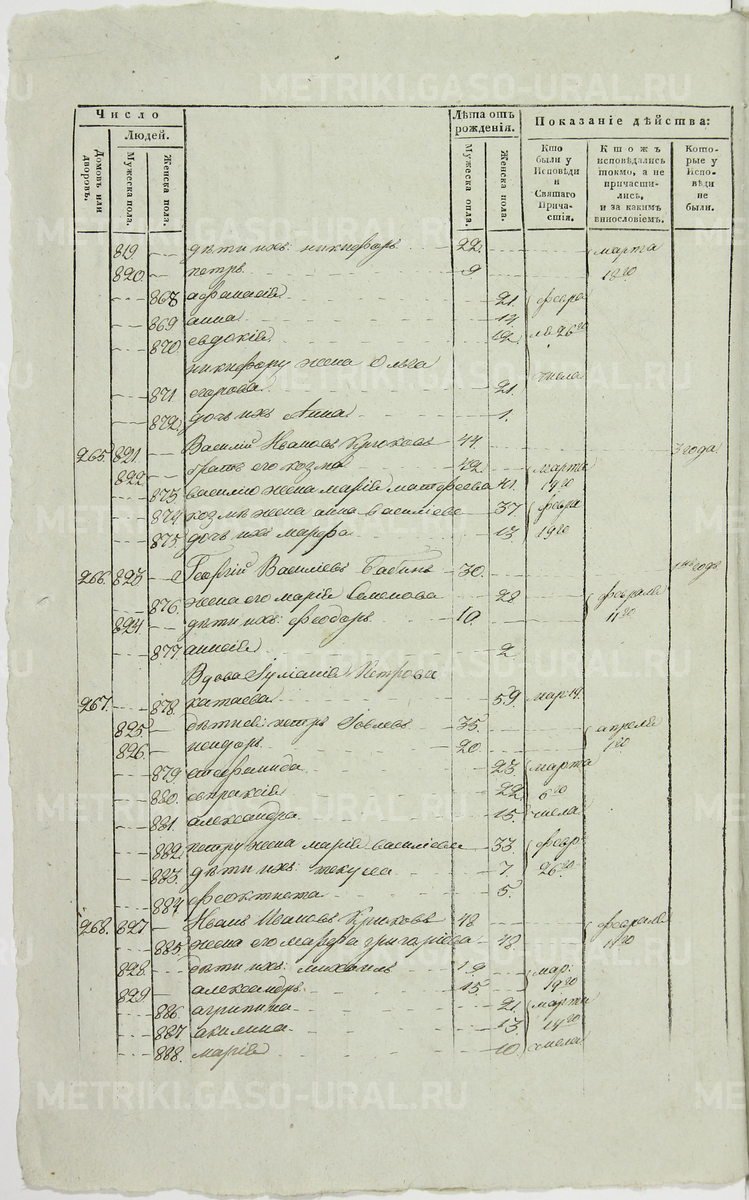 Число
Людей.
Домовъ или дворовъ.
Мужеска пола.
Женска пола.
Лѣта отъ рожденія.
Мужеска пола.
Женска пола.
Показаніе дѣйства:
Кто были у Исповѣди и Святаго Причастія.
Ктожъ исповѣдались токмо, а не причастились, и за какимъ винословіемъ.
Которые у Исповѣди не были.
819 дѣти ихъ: никифоръ 22. марта
820. петръ 9 18го
868 афанасія 21. февра
869 анна 14.
870. евдокія 12. ля 26го
никифору жена Ольга числа
871 егорова 21.
872. дочь ихъ Анна 1.
265. 821 Василій Ивановъ Крюковъ 44 3 года
822 братъ его козма 42. марта
873. василію жена марія матфеева 41. 19го
874 козмѣ жена анна васильева 37. февра
875. дочь ихъ марфа 13 19го
266. 823 Георгій Василіевъ Бабинъ 30. годъ
876. жена его марія Семенова 28 февраля
824 дѣти ихъ: феодоръ 10 11го
877. 2
Вдова Петрова
267. 878. катаева 59. мар. 14.
825. дѣти ей: петръ Іовлевъ 35. апреля
826. исидоръ 20. 1го
879. 23. марта
880. евпраксія 22. 6го
881. александра 15. числа
882. петру жена марія василіева 33. февр.
883. дѣти ихъ: текуса 7. 26го
884. феоктиста 5.
268. 827 Иванъ Ивановъ Крюковъ 48 февраля
885. жена его марфа григоріева 48. 11го
828. дѣти ихъ: михаилъ 19 мар.
829 александръ 15. 19го
886. агрипина 21. марта
887 акилина 13 14го
888. марія 10. числа
METRIKI.GASO-URAL.RU